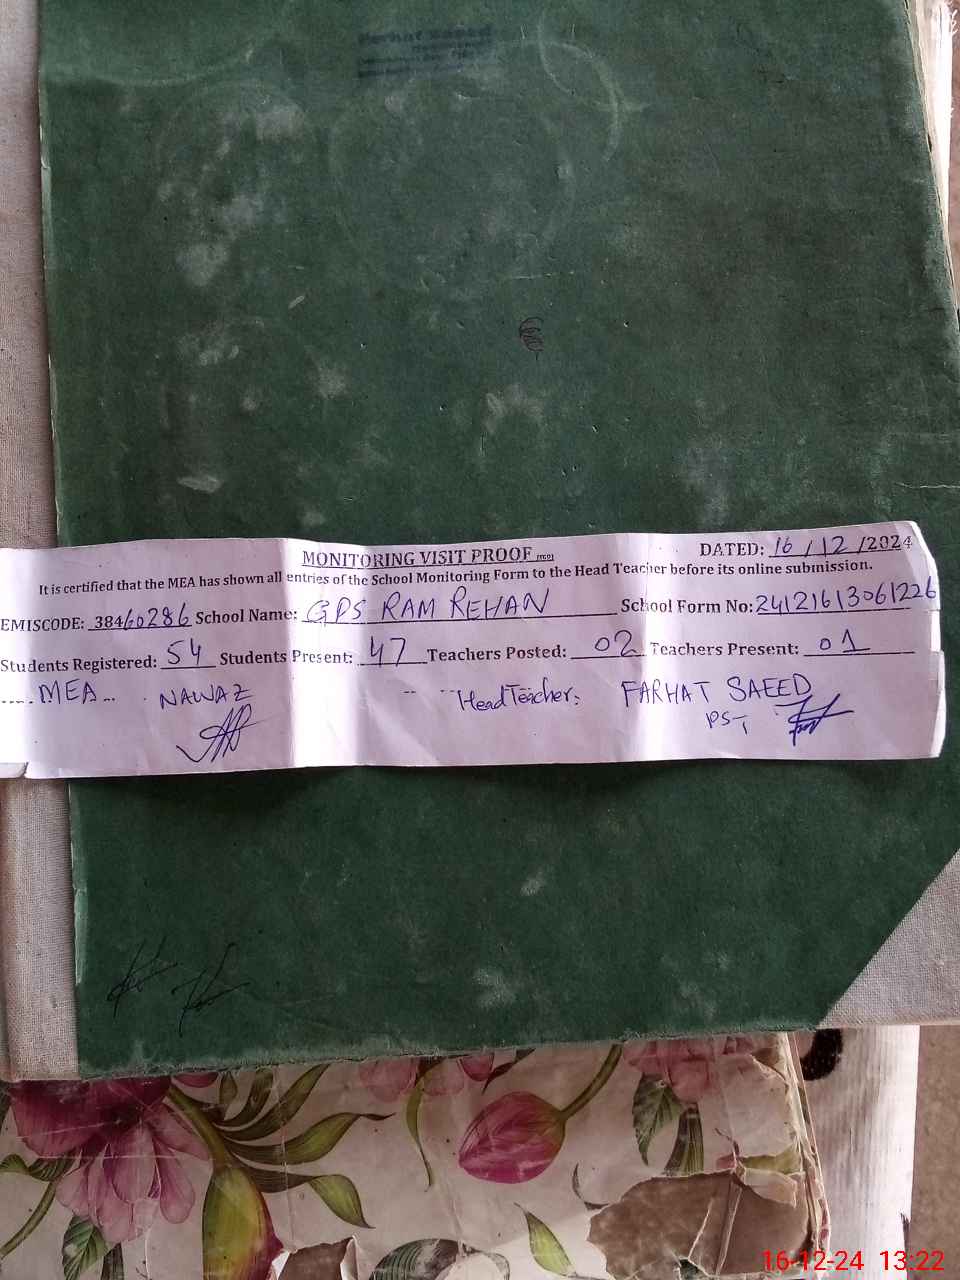 MONITORING VISIT PROOF
DATED: 16/12/2024
It is certified that the MEA has shown all entries of the School Monitoring Form to the Head Teacher before its online submission.
EMISCODE: 38460286 School Name: GPS RAM REHAN School Form No: 24121613061226
Students Registered: 54 Students Present: 47 Teachers Posted: 02 Teachers Present: 01
MEA NAWAZ Head Teacher: FARHAT SAEED
PST
16-12-24 13:22